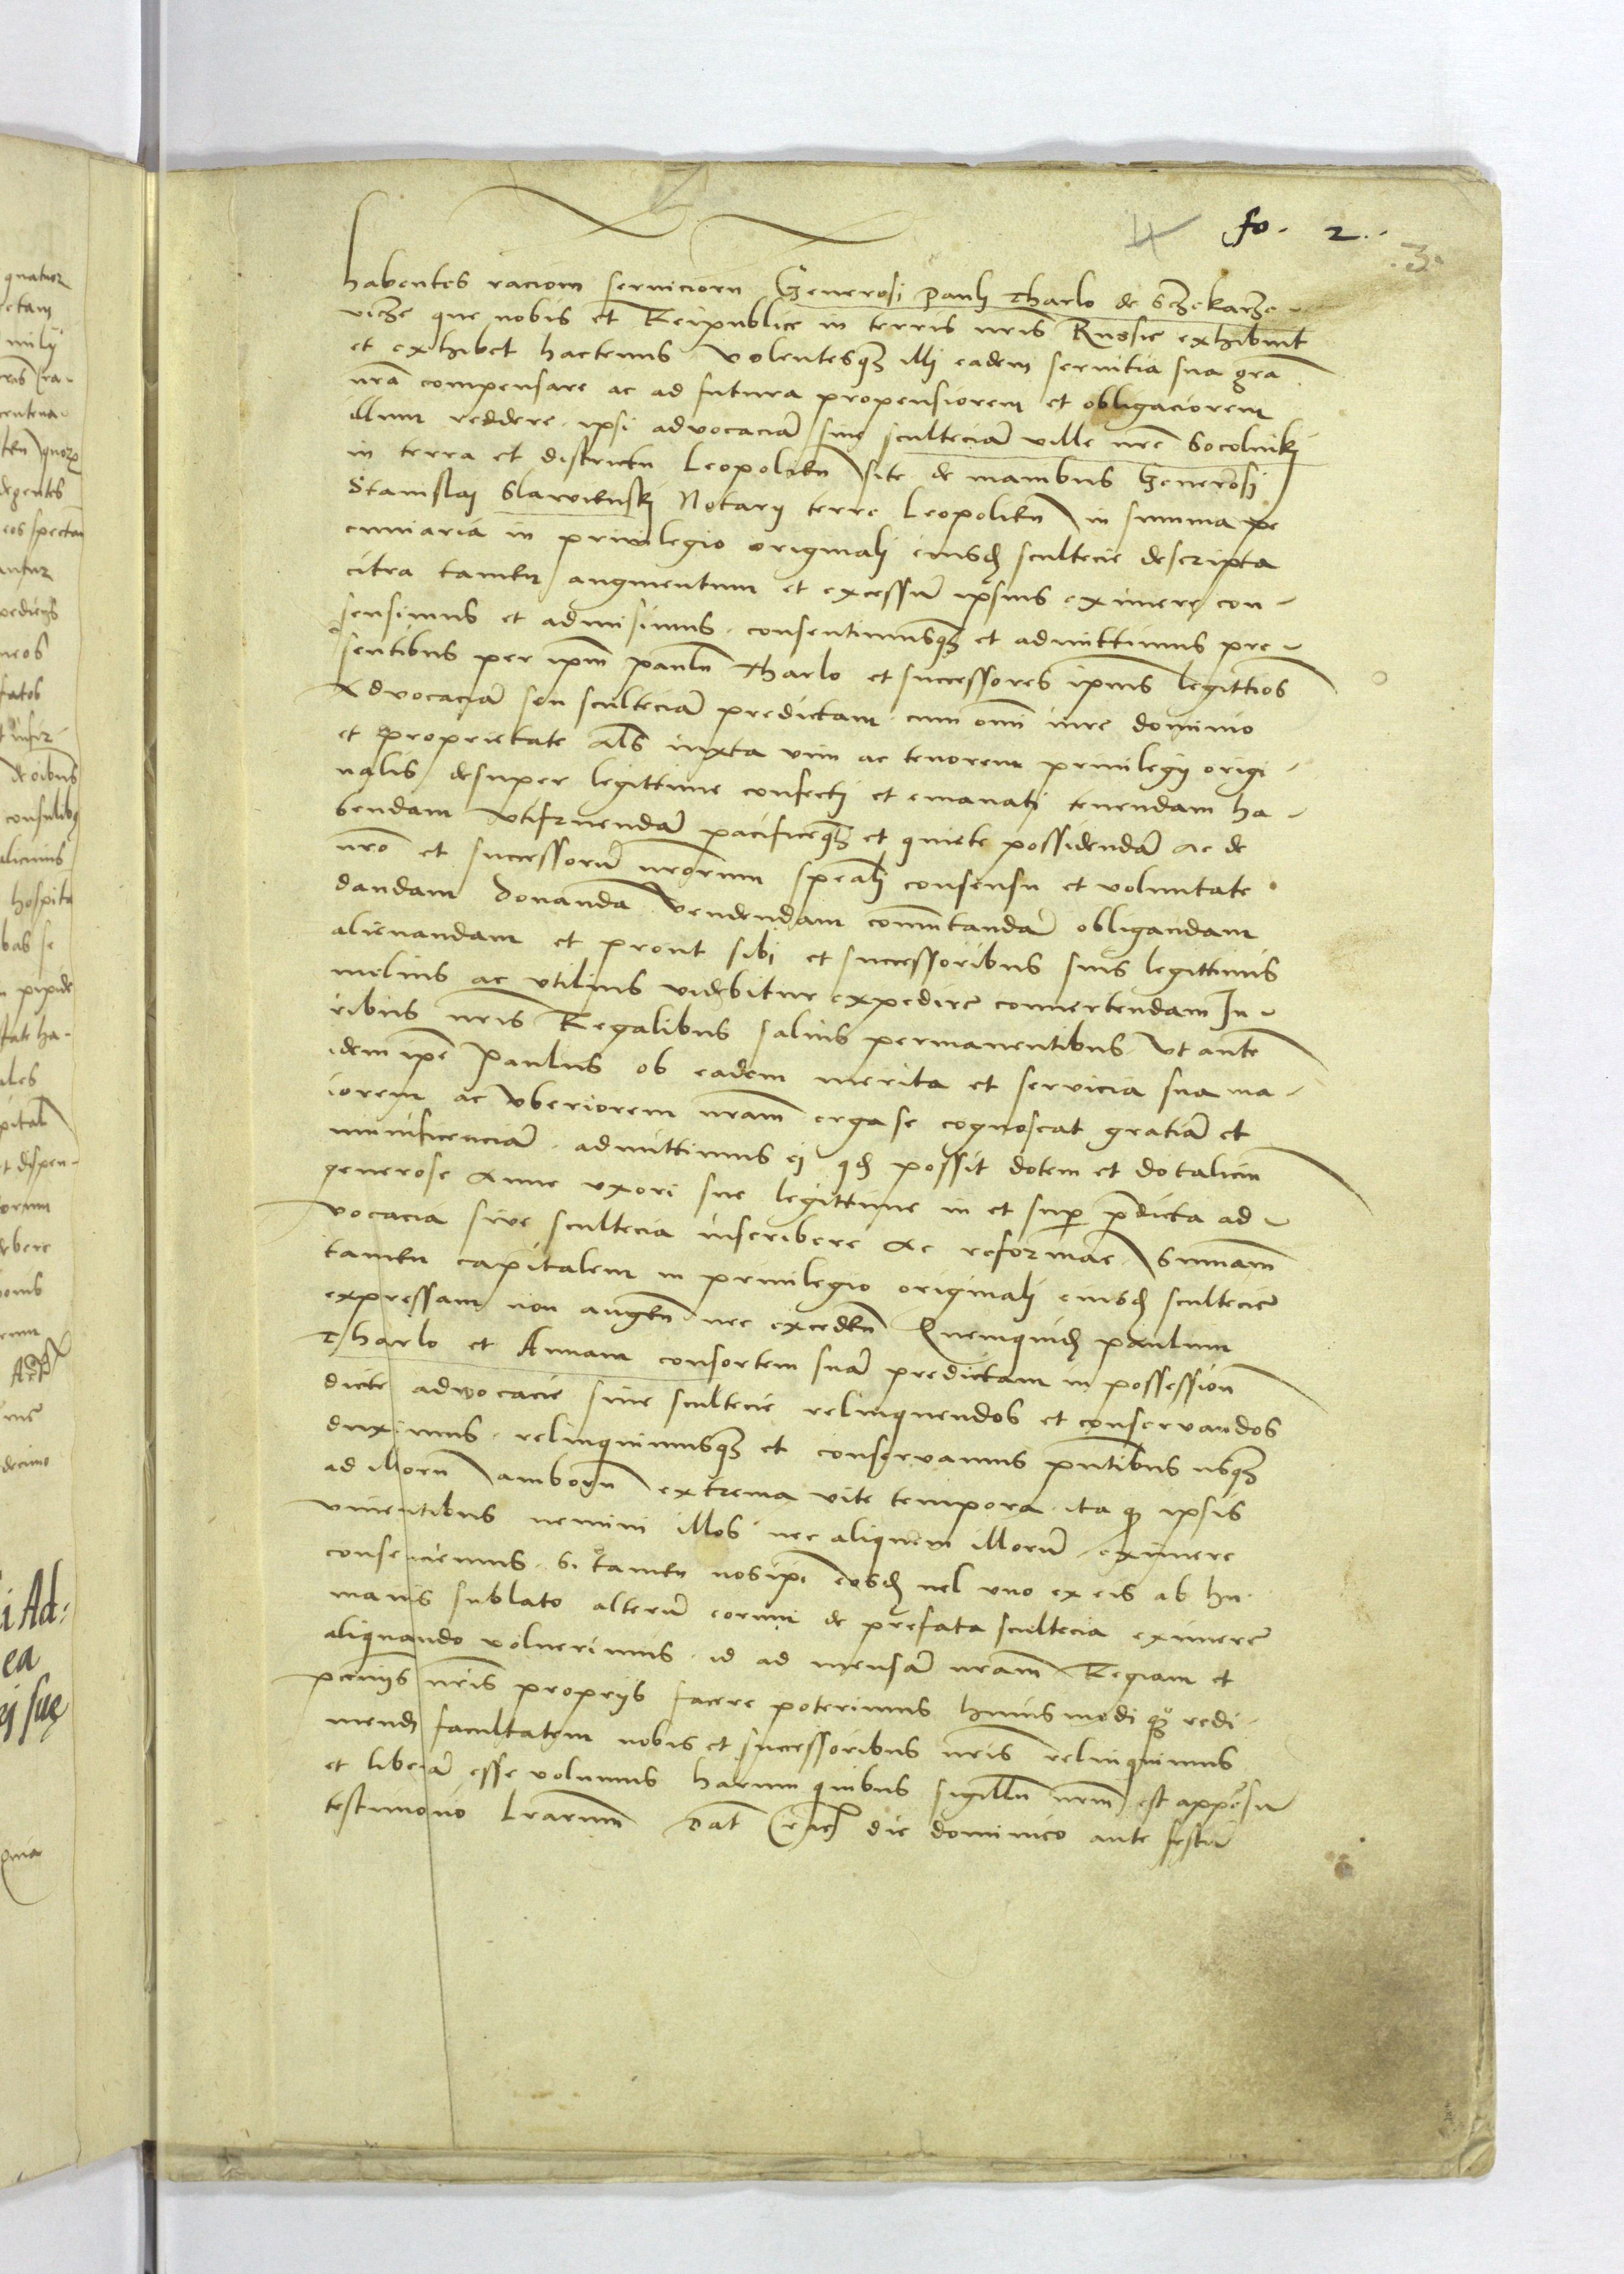 fo. 2..
3
habentes raciom serviciorn Generosi Pauli Tharlo de Sczekarze-
vicze que nobis et Reipublice in terris nris Russie exhibuit
et exhibet hactenus volentesqz illi eadem servitia sua gra
nra compensare ac ad futura propensiorem et obligaciorem
illum reddere ipsi advocaciā sive sculteciā ville nre Socolniki
in terra et districtu Leopolien site de manibus Generosi
Stanislai Slawienski Notarii terre Leopolien in summa pe
cuniaria in privilegio originali eiusd scultecie descripta
citra tamen augmentum et excessū ipsius eximere con-
sensimus et admisimus consentimusqz et admittimus pre-
sentibus per ipm paulū Tharlo et successores ipius legittios
Advocaciā seu sculteciā predictam cum omi iure dominio
et proprietate als iuxta vim ac tenorem privilegii origi-
nalis desuper legittime confecti et emanati tenendam ha-
bendam utifruendā pacificeqz et quiete possidendā ac de
nro et successorū nrorum speali consensu et voluntate
dandam donandā vendendam comutandā obligandam
alienandam et prout sibi et successoribus suis legittimis
melius ac utilius videbitur expedire convertendam Iu-
ribus nris Regalibus salvis permanentibus Ut autē
idem ipe Paulus ob eadem merita et servicia sua ma-
iorem ac uberiorem nram erga se cognoscat gratiā et
munificenciā admittimus ei qd possit dotem et dotaliciu
generose Anne uxori sue legittime in et sup pdicta ad-
vocacia sive scultecia inscribere ac reformare Summam
tamen capitalem in privilegio originali eiusd scultecie
expressam non augen nec exceden Quemquid paulum
Tharlo et Annam consortem suā predictam in possession
dicte advocacie sive scultecie relinquendos et conservandos
duximus relinquimusqz et conservamus pntibus usqz
ad illorū amborū extrema vite tempora ita q ipsis
viventibus nemini illos nec aliquem illorū eximere
consenciemus Si tamen nosipi eosd vel uno ex eis ab hu-
manis sublato alterū eorum de prefata scultecia eximere
aliquando voluerimus id ad mensā nram Regiam et
pecuniis nris propriis facere poterimus huiusmodi qz redi-
mendi facultatem nobis et successoribus nris relinquimus
et liberā esse volumus harum quibus sigillū nrm est appesu
testimonio lrarum Dat Crac die dominico ante festū